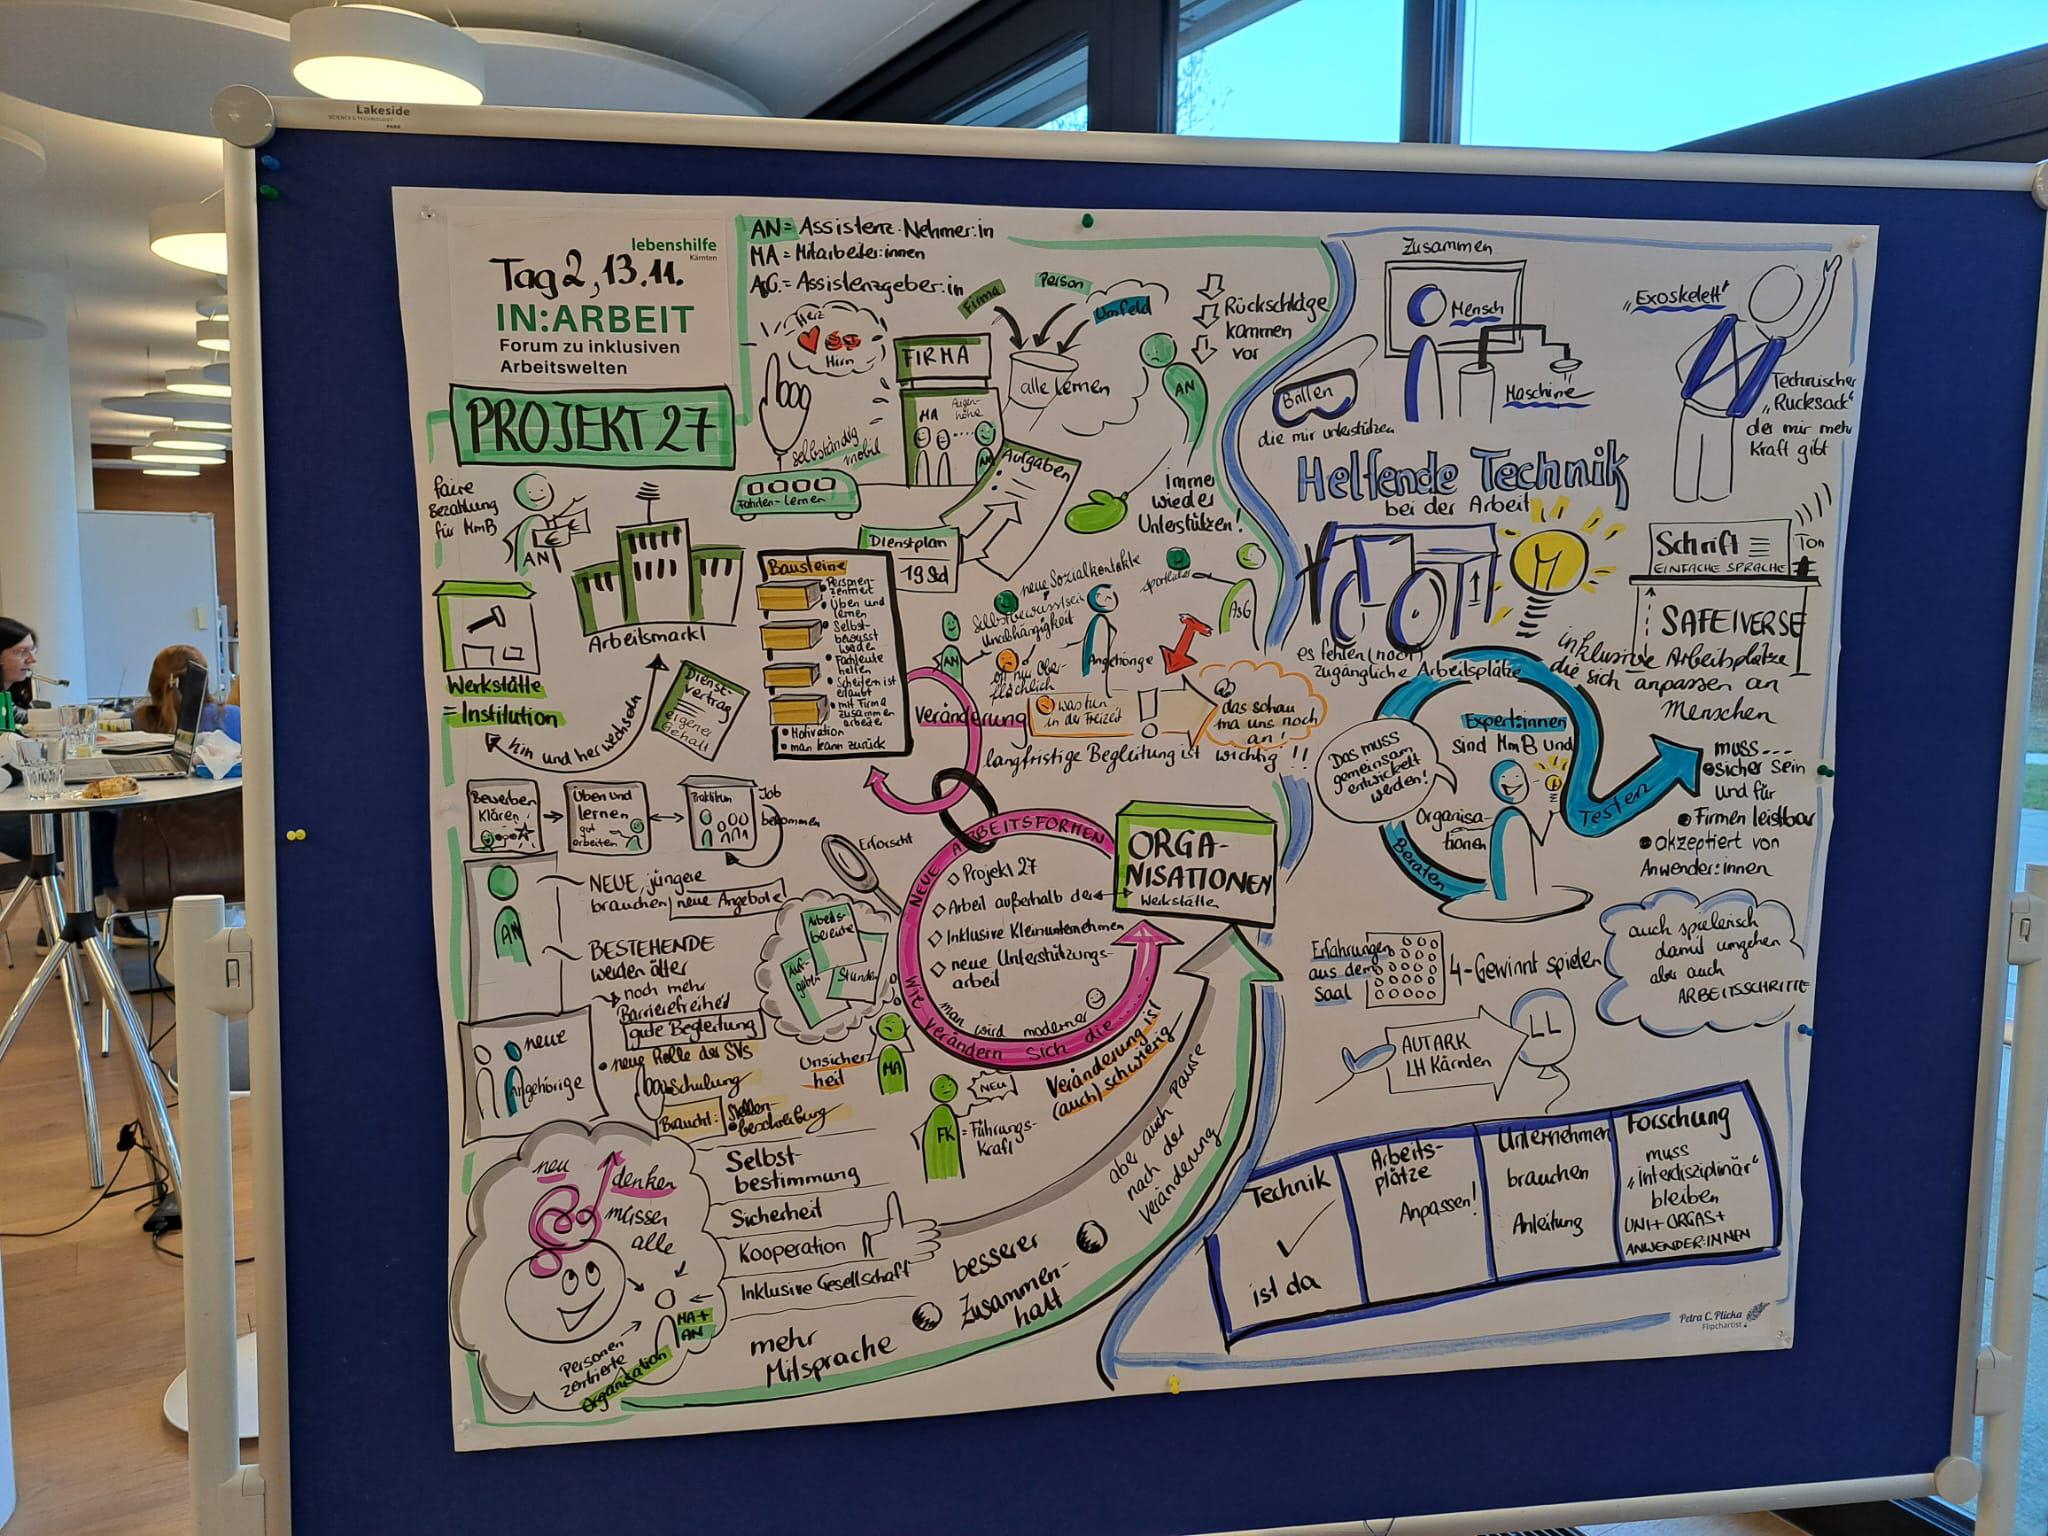 Lakeside
SCIENCE & TECHNOLOGY
PARK
lebenshilfe
Kärnten
Tag 2, 13.11.
IN:ARBEIT
Forum zu inklusiven
Arbeitswelten
PROJEKT 27
AN = Assistenz-Nehmer:in
MA = Mitarbeiter:innen
AsG. = Assistenzgeber:in
Herz
Hirn
Firma
Person
Umfeld
alle Lernen
FIRMA
MA
Augen-
höhe
AN
AN
Rückschläge
kommen
vor
Immer
wieder
Unterstützen!
selbständig
mobil
Fahrten-Lernen
Aufgaben
Dienstplan
19 Std
faire
Bezahlung
für MmB
AN
Arbeitsmarkt
Werkstätte
= Institution
hin und her wechseln
Dienst-
vertrag
eigenes
Gehalt
Bausteine
• Personen-
zentriert
• Üben und
lernen
• Selbst-
bewusst
werden
• Fachleute
helfen
• Scheitern ist
erlaubt
• mit Firma
zusammen
arbeiten
• Motivation
• man kann zurück
neue Sozialkontakte
Selbstbewusstsein
Unabhängigkeit
AN
oft nur ober-
flächlich
Angehörige
Sportlicher
AsG
Veränderung
was tun
in der Freizeit
!
das schau
ma uns noch
an!
langfristige Begleitung ist wichtig!!
Bewerben
Klären
Üben und
lernen
gut
arbeiten
Praktikum
Job
bekommen
AN
NEUE, jüngere
brauchen neue Angebote
BESTEHENDE
werden älter
noch mehr
Barrierefreiheit
gute Begleitung
neue
Angehörige
• neue Rolle der SVs
Schulung
Braucht:
Stellen-
beschreibung
Erforscht
Arbeits-
bereiche
Auf-
gaben
Stunden
Unsicher-
heit
MA
NEUE ARBEITSFORMEN
Projekt 27
Arbeit außerhalb der
Werkstätte
Inklusive Kleinunternehmen
neue Unterstützungs-
arbeit
man wird moderner
Wie verändern sich die...
ORGA-
NISATIONEN
FK
= Führungs-
kraft
NEU
Veränderung ist
(auch) schwierig
aber auch Pause
nach der
Veränderung
neu
denken
müssen
alle
MA+
AN
Personen
zentrierte
Organisation
Selbst-
bestimmung
Sicherheit
Kooperation
Inklusive Gesellschaft
mehr
Mitsprache
besserer
Zusammen-
halt
Zusammen
Mensch
Maschine
Brillen
die mir unterstützen
„Exoskelett“
Technischer
„Rucksack“
der mir mehr
Kraft gibt
Helfende Technik
bei der Arbeit
Schrift
EINFACHE SPRACHE
Ton
SAFEIVERSE
inklusive Arbeitsplätze
die sich anpassen an
Menschen
es fehlen (noch)
zugängliche Arbeitsplätze
Das muss
gemeinsam
entwickelt
werden!
Expert:innen
sind MmB und
Organisa-
tionen
Beraten
Testen
muss....
• sicher sein
und für
• Firmen leistbar
• akzeptiert von
Anwender:innen
Erfahrungen
aus dem
Saal
4-Gewinnt spielen
auch spielerisch
damit umgehen
aber auch
ARBEITSSCHRITTE
AUTARK
LH Kärnten
LL
Technik
ist da
Arbeits-
plätze
Anpassen!
Unternehmen
brauchen
Anleitung
Forschung
muss
„Interdisziplinär“
bleiben
UNI + ORGAS +
ANWENDER:INNEN
Petra C. Plicka
Flipchartist